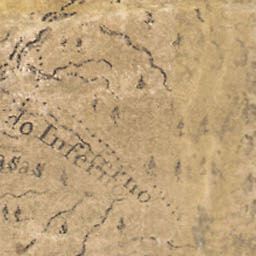 do Infierno
asas